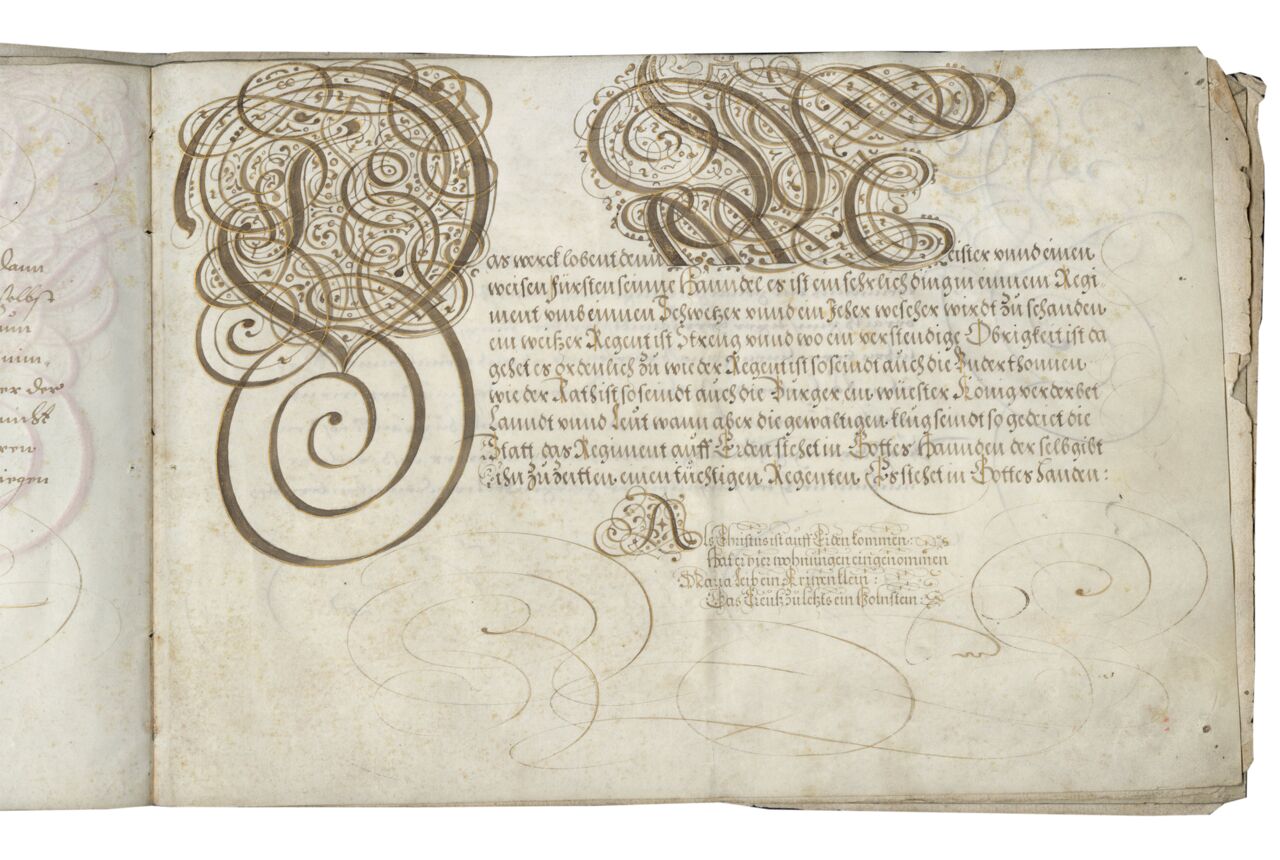 dann
selbst
zum
nim-
er der
nicht
ren
irgen
Das werck lobent denn Meister vnnd einen
weisen fürsten seinne Hanndel es ist ein sehrlich ding in einnem Regi
ment vmb einnen Schwetzer vnnd ein Jeher wescher wirdt zu schanden
ein weißer Regent ist Streng vnnd wo ein verstendige Obrigkeit ist da
gehet es ordenlich zu wie der Regent ist so seindt auch die Vnderthonnen
wie der Rath ist so seindt auch die Burger ein wüester König verderbet
Lanndt vnnd Leut wann aber die gewaltigen klug seindt so gedeiet die
Statt das Regiment auff Erden stehet in Gottes Hannden der selb gibt
Ihn zu zeitten einen tüchtigen Regenten. Es stehet in Gottes Handen:
Als Christus ist auff Erden kommen:
Hat er vier wohnungen eingenommen
Maria leib ein Krippenllein:
Das Creutz zu letzts ein Holnstein: